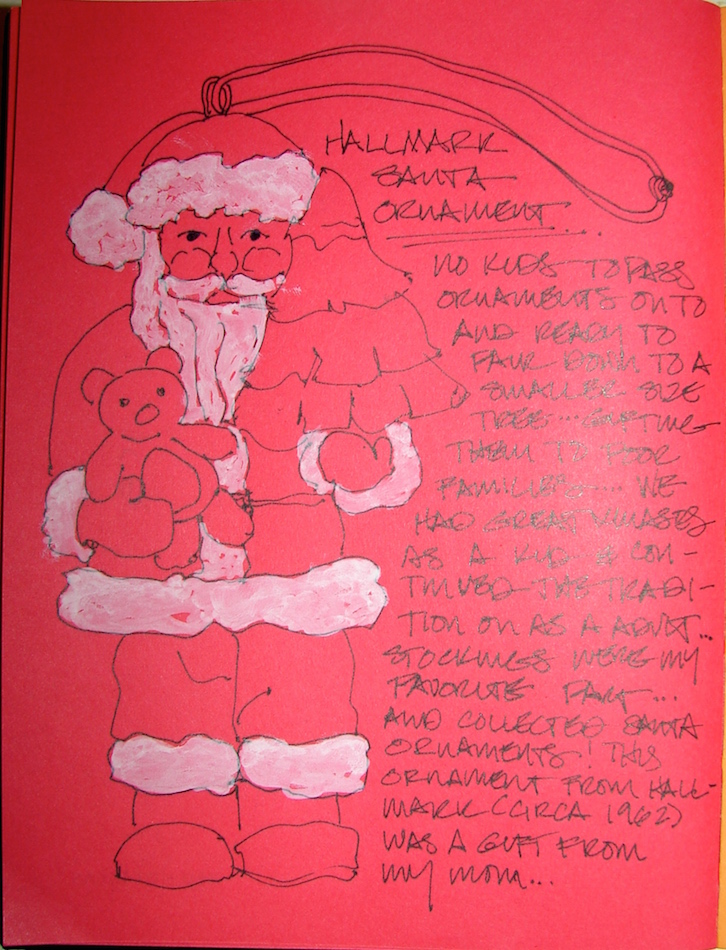 HALLMARK
SANTA
ORNAMENT...
NO KIDS TO PASS
ORNAMENTS ON TO
AND READY TO
PAIR DOWN TO A
SMALLER SIZE
TREE... GIFTING
THEM TO POOR
FAMILIES.... WE
HAD GREAT XMASES
AS A KID & CON-
TINUED THE TRADI-
TION ON AS A ADULT...
STOCKINGS WERE MY
FAVORITE PART...
AND COLLECTED SANTA
ORNAMENTS! THIS
ORNAMENT FROM HALL-
MARK (CIRCA 1962)
WAS A GIFT FROM
MY MOM...